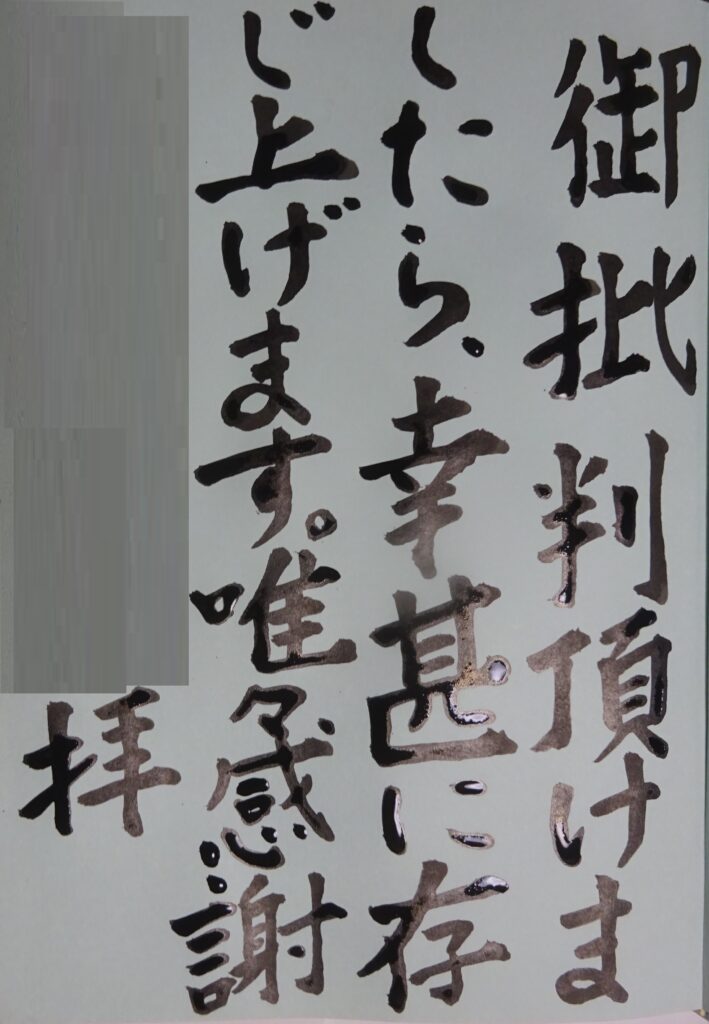 御批判頂けま
したら、幸甚に存
じ上げます。唯々感謝
拝